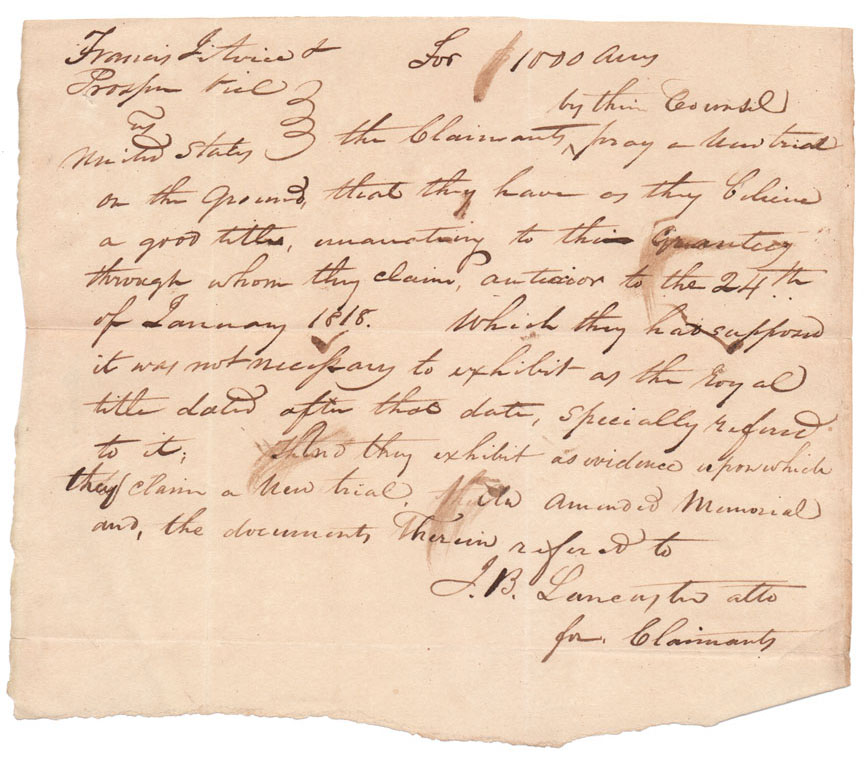 Francis J Avice &
For 1000 Acres
Prosper Viel
by their Counsel
vs
United States the Claimants, pray a New trial
on the Ground, that they have as they believe
a good title, emanating to the Grantees
through whom they claim, anterior to the 24th
of January 1818. Which they had supposed
it was not necessary to exhibit as the royal
title dated after that date, specially refered
to it; And they exhibit as evidence upon which
they claim a New trial, Amended Memorial
and, the documents Therein refered to
J. B. Lancaster atto
for. Claimants